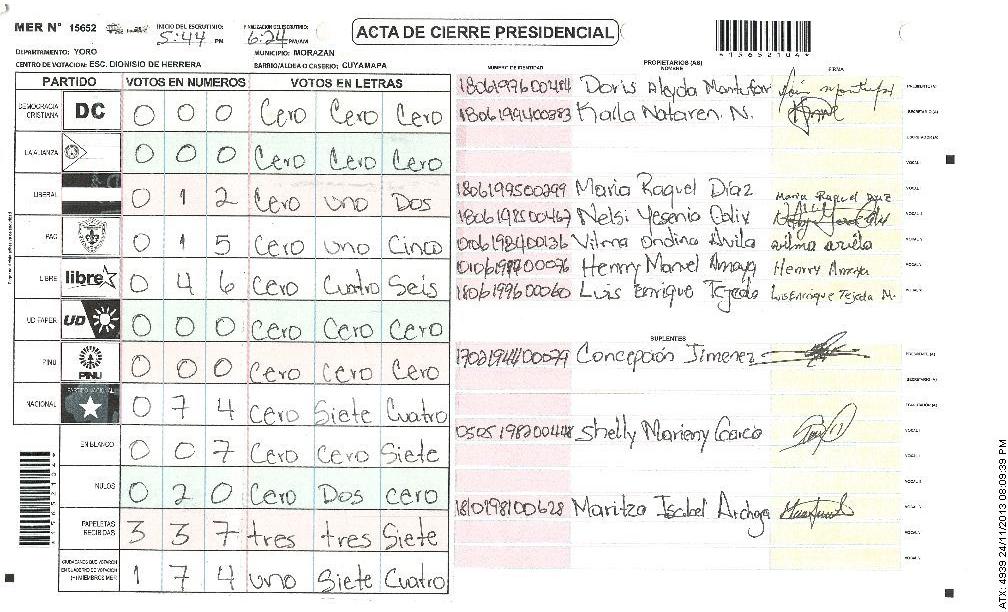 MER N° 15652
INICIO DEL ESCRUTINIO: 5:44 PM
FINALIZACION DEL ESCRUTINIO: 6:24 PM/AM
ACTA DE CIERRE PRESIDENCIAL
DEPARTAMENTO: YORO
MUNICIPIO: MORAZAN
CENTRO DE VOTACION: ESC. DIONISIO DE HERRERA
BARRIO/ALDEA O CASERIO: CUYAMAPA
PARTIDO VOTOS EN NUMEROS VOTOS EN LETRAS
DEMOCRACIA CRISTIANA DC 0 0 0 Cero Cero Cero
LA ALIANZA 0 0 0 Cero Cero Cero
LIBERAL 0 1 2 Cero uno Dos
PAC 0 1 5 Cero uno Cinco
LIBRE libre 0 4 6 Cero Cuatro Seis
UD FAPER UD 0 0 0 Cero Cero Cero
PINU PINU 0 0 0 Cero Cero Cero
NACIONAL PARTIDO NACIONAL 0 7 4 Cero Siete Cuatro
EN BLANCO 0 0 7 Cero Cero Siete
NULOS 0 2 0 Cero Dos cero
PAPELETAS RECIBIDAS 3 3 7 tres tres Siete
CIUDADANOS QUE VOTARON EN CUADERNO DE VOTACION (+) MIEMBROS MER 1 7 4 uno Siete Cuatro
NUMERO DE IDENTIDAD PROPIETARIOS (AS) NOMBRE FIRMA
Doris Aleyda Montufar PRESIDENTE (A)
1806199400383 Karla Nataren N. SECRETARIO (A)
ESCRUTADOR (A)
VOCAL
1806199500299 Maria Raquel Díaz Maria Raquel Diaz VOCAL
1806198500467 Nelsi Yesenia VOCAL
Vilma Ondina Avila vilma avila VOCAL
Henrry Manuel Amaya Henrry Amaya VOCAL
1806199600060 Luis Enrique Tejeda Luis Enrique Tejeda M. VOCAL
SUPLENTES
1702194400079 Concepción Jimenez PRESIDENTE (A)
SECRETARIO (A)
ESCRUTADOR (A)
Shelly Marieny Garcia VOCAL
VOCAL
VOCAL
1810198100628 Maritza Isabel Archaga VOCAL
VOCAL
ATX: 4939 24/11/2013 08:09:39 PM